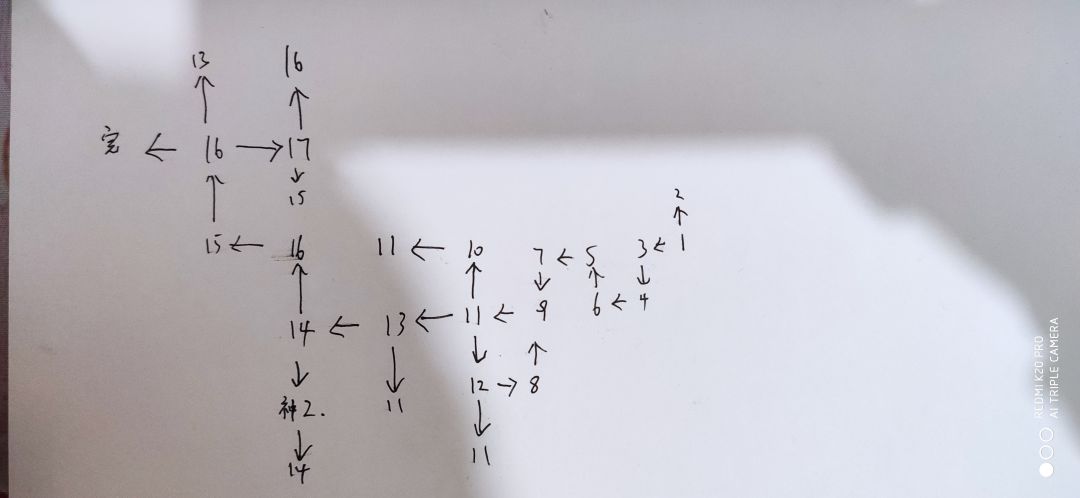 13 16
完 ← 16 → 17
15
2
15 ← 16 11 ← 10 7 ← 5 3 ← 1
14 ← 13 ← 11 ← 9 6 ← 4
12 → 8
神2. 11
11
14
REDMI K20 PRO
AI TRIPLE CAMERA